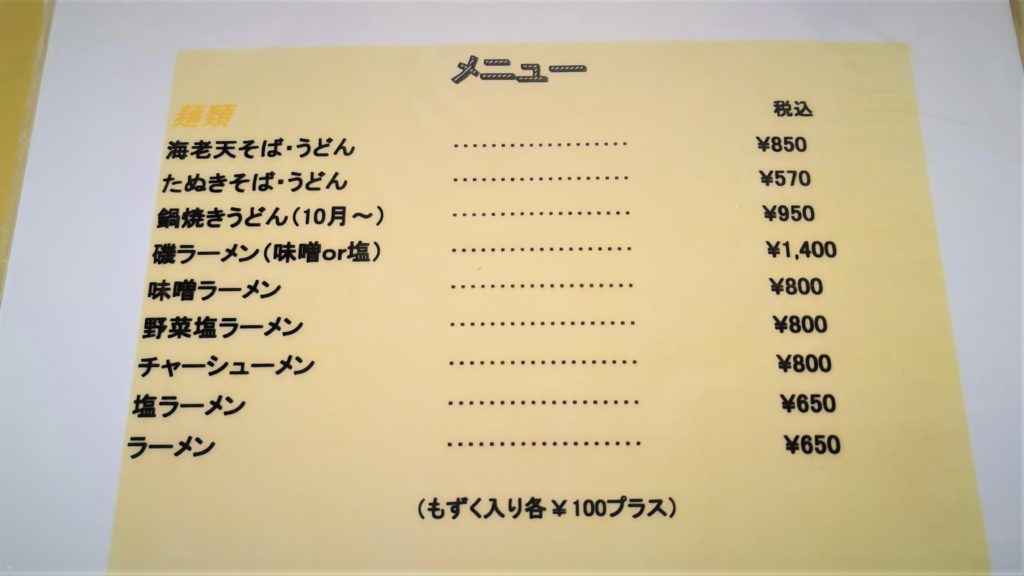 メニュー
麺類 税込
海老天そば・うどん ・・・・・・・・・・・・・・・・・・・ ¥850
たぬきそば・うどん ・・・・・・・・・・・・・・・・・・・ ¥570
鍋焼きうどん（10月～） ・・・・・・・・・・・・・・・・・・・ ¥950
磯ラーメン（味噌or塩） ・・・・・・・・・・・・・・・・・・・ ¥1,400
味噌ラーメン ・・・・・・・・・・・・・・・・・・・ ¥800
野菜塩ラーメン ・・・・・・・・・・・・・・・・・・・ ¥800
チャーシューメン ・・・・・・・・・・・・・・・・・・・ ¥800
塩ラーメン ・・・・・・・・・・・・・・・・・・・ ¥650
ラーメン ・・・・・・・・・・・・・・・・・・・ ¥650
（もずく入り各￥100プラス）